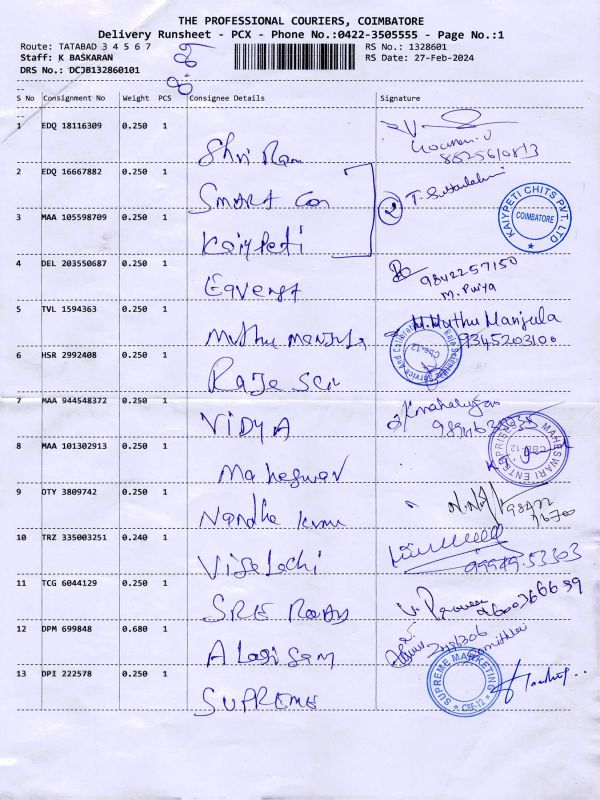 THE PROFESSIONAL COURIERS, COIMBATORE
Delivery Runsheet - PCX - Phone No.:0422-3505555 - Page No.:1
Route: TATABAD 3 4 5 6 7
RS No.: 1328601
Staff: K BASKARAN
RS Date: 27-Feb-2024
DRS No.: DCJB132860101
S No Consignment No Weight PCS Consignee Details Signature
1 EDQ 18116309 0.250 1
Shri Ram
8825610813
2 EDQ 16667882 0.250 1
SMART Con
2 T.
3 MAA 105598709 0.250 1
Kaiypeti
KAIYPETI CHITS PVT. LTD
COIMBATORE
4 DEL 203550687 0.250 1
9842257150
M. Priya
5 TVL 1594363 0.250 1
Muthu Manjula
M. Muthu Manjula
9345203100
6 HSR 2992408 0.250 1
Raje Sci
Cbe-12
7 MAA 944548372 0.250 1
VIDYA
8 MAA 101302913 0.250 1
Maheswar
MAHESWARI ENTERPRISES
CBE-12
9 OTY 3809742 0.250 1
Nandha Kumar
10 TRZ 335003251 0.240 1
99949.53303
11 TCG 6044129 0.250 1
SRE
V. Praveen 9600366699
12 DPM 699848 0.680 1
13 DPI 222578 0.250 1
SUPREME
SUPREME MARKETING
CBE-12